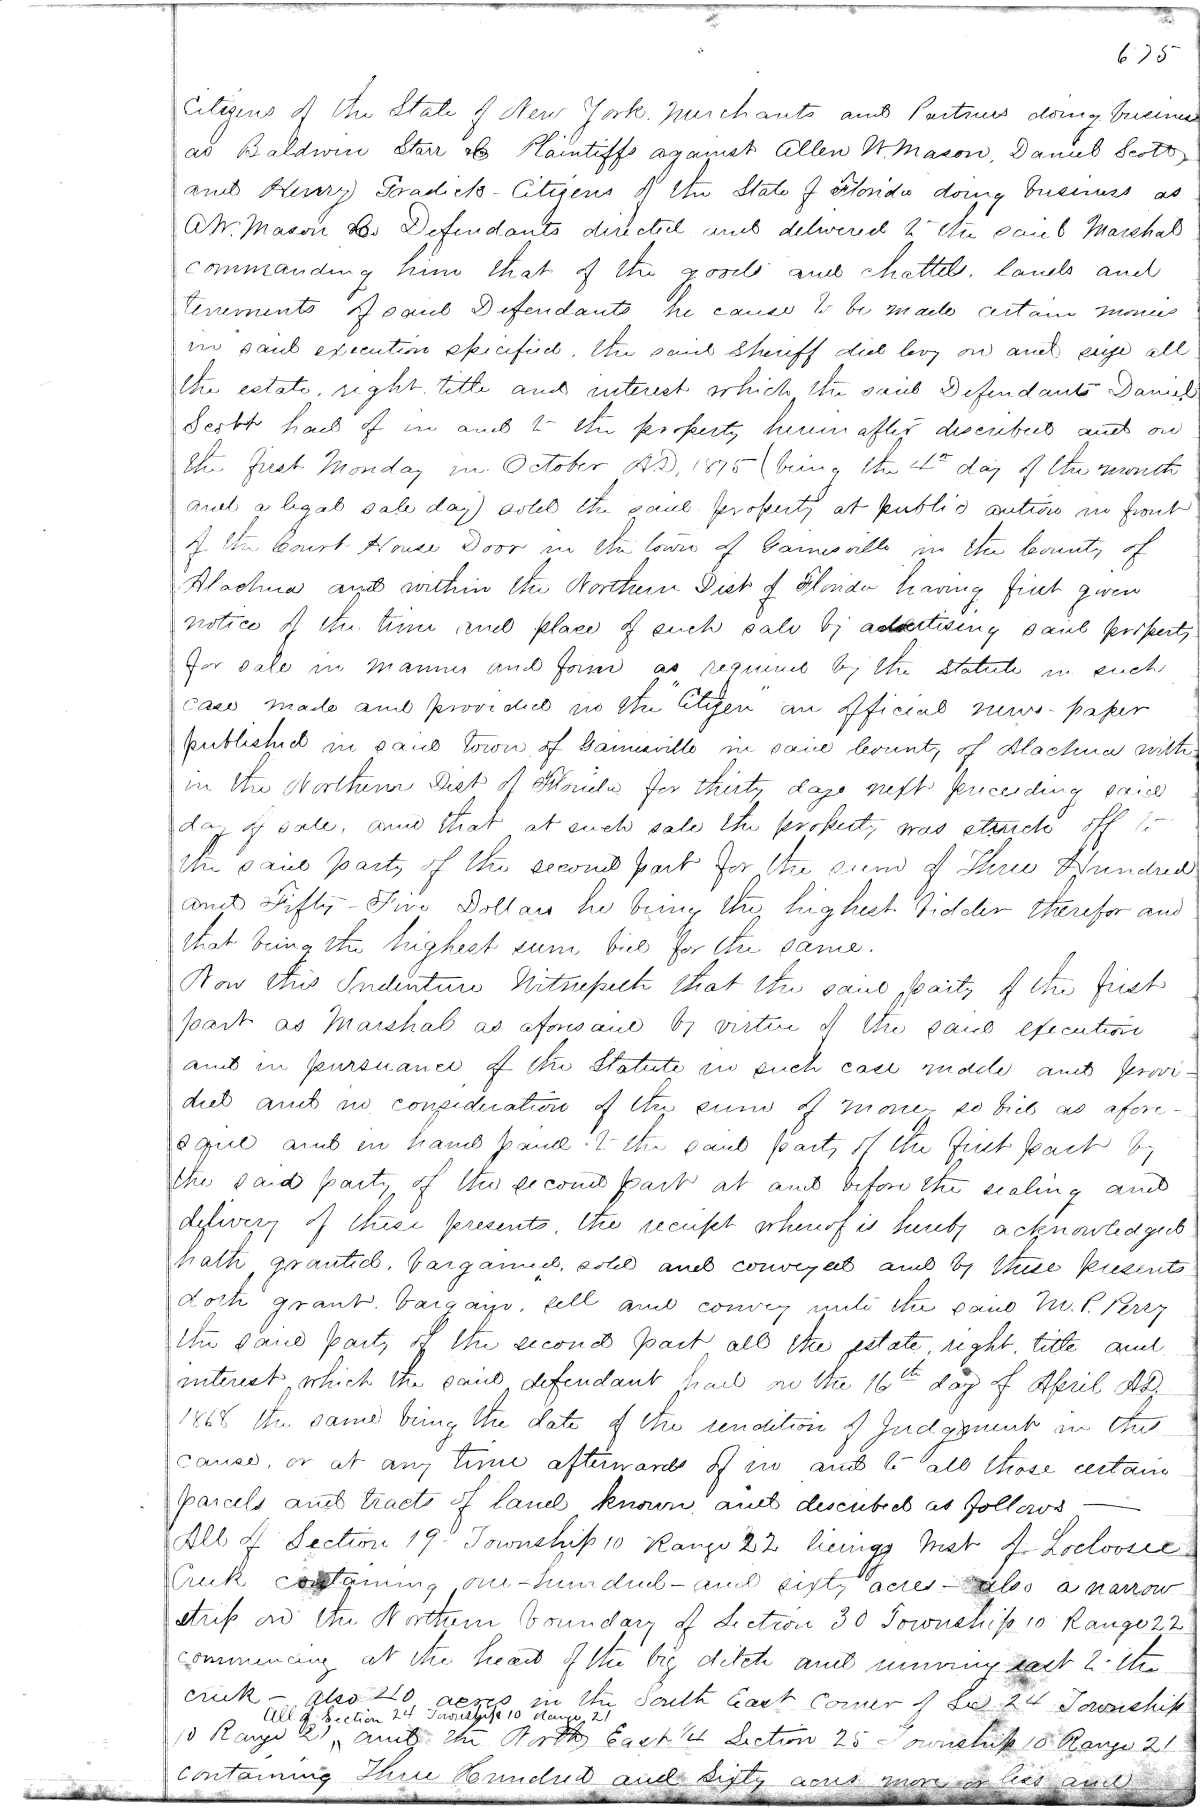 675
Citizens of the State of New York. Merchants and Partners doing business
as Baldwin Starr & Co Plaintiffs against Allen W. Mason, Daniel Scott,
and Henry Fradick - Citizens of the State of Florida doing business as
A.W. Mason & Co. Defendants directed and delivered to the said Marshal
commanding him that of the goods and chattels, lands and
tenements of said Defendants he cause to be made certain monies
in said execution specified. the said Sheriff did levy on and seize all
the estate, right, title and interest which the said Defendants Daniel
Scott had of in and to the property hereinafter described and on
the first Monday in October AD, 1875 (being the 4th day of the month
and a legal sale day) sold the said property at public aution in front
of the Court House Door in the town of Gainesville in the County of
Alachua and within the Northern Dist of Florida having first given
notice of the time and place of such sale by advertising said property
for sale in manner and form as required by the Statute in such
case made and provided in the "Citizen" an official news-paper
published in said town of Gainesville in said County of Alachua with-
in the Northern Dist of Florida for thirty days next preceeding said
day of sale, and that at such sale the property was struck off to
the said party of the second part for the sum of Three Hundred
and Fifty-Five Dollars he being the highest bidder therefor and
that being the highest sum bid for the same.
Now this Indenture Witnesseth that the said party of the first
part as Marshal as aforesaid by virtue of the said execution
and in pursuance of the Statute in such case made and provi-
ded and in consideration of the sum of money so bid as afore-
said and in hand paid to the said party of the first part by
the said party of the second part at and before the sealing and
delivery of these presents, the receipt whereof is hereby acknowledged
hath granted, bargained, sold and conveyed and by these presents
doth grant, bargain, sell and convey unto the said M.P. Perry
the said party of the second part all the estate, right, title and
interest which the said defendant had on the 16th day of April AD.
1868 the same being the date of the rendition of Judgment in this
cause, or at any time afterwards of in and to all those certain
parcels and tracts of land known and described as follows —
All of Section 19 Township 10 Range 22 lieing West of Lochloosee
Creek containing one-hundred-and sixty acres - also a narrow
strip on the Northern boundary of Section 30 Township 10 Range 22
commencing at the head of the big ditch and running east to the
creek - also 40 acres in the South East Corner of Sec 24 Township
All of Section 24 Township 10 Range 21
10 Range 21 and the North East 1/4 Section 25 Township 10 Range 21
containing Three Hundred and Sixty acres more or less and